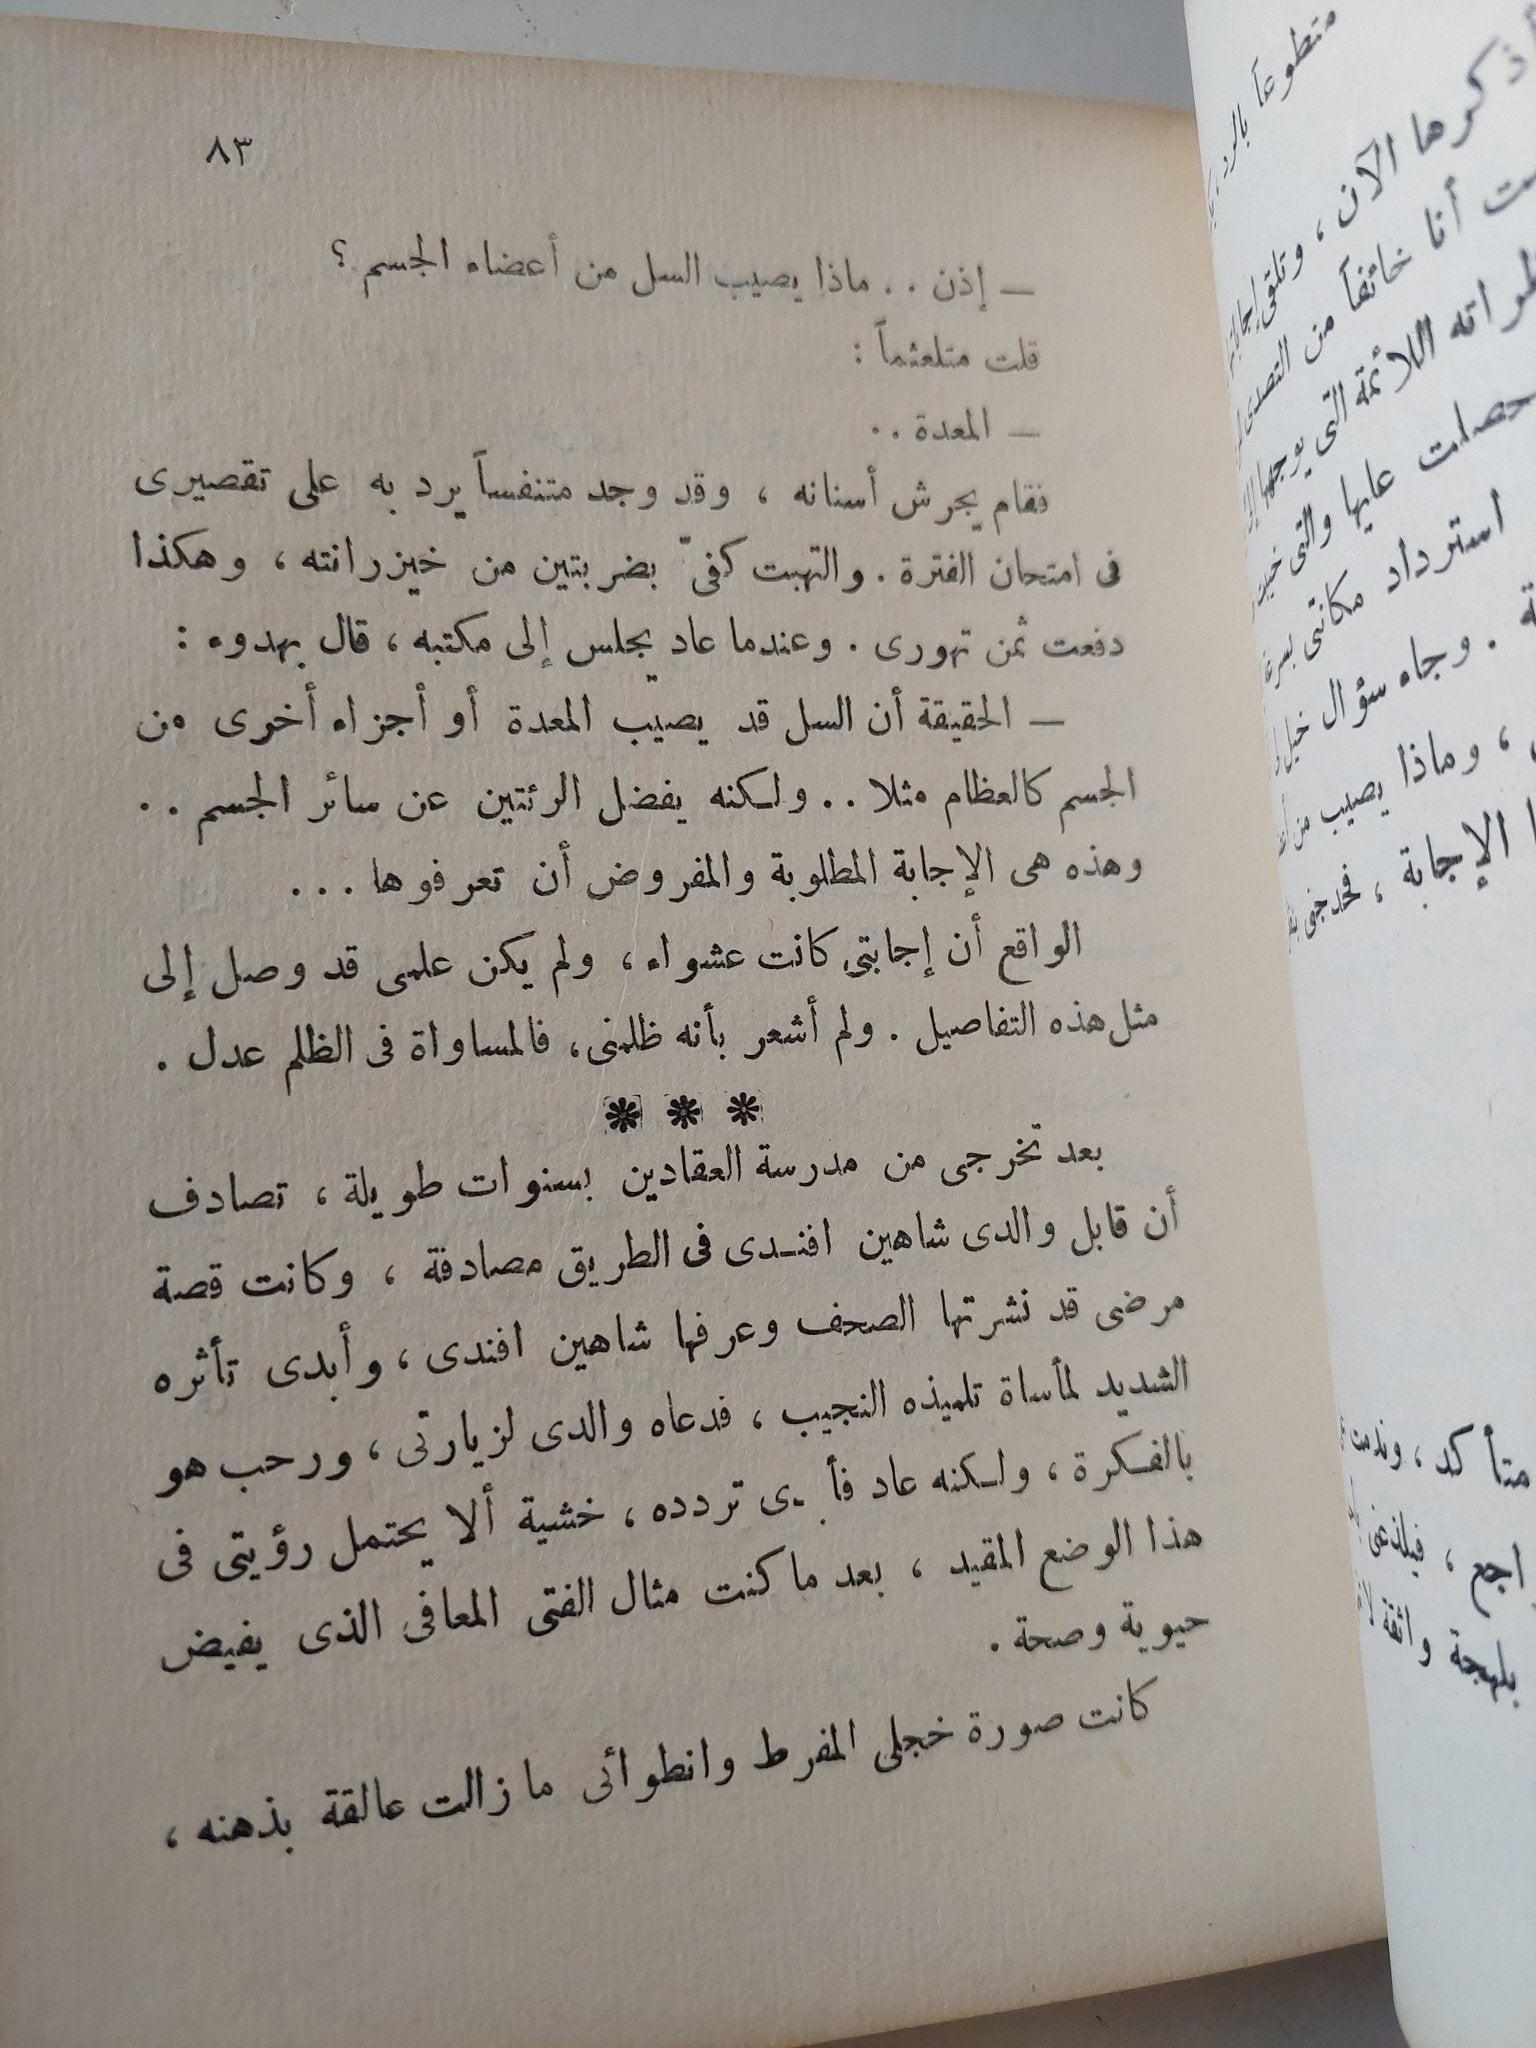 ٨٣
— إذن . . ماذا يصيب السل من أعضاء الجسم ؟
قلت متلعثماً :
— المعدة . .
فقام يجرش أسنانه ، وقد وجد متنفساً يرد به على تقصيرى
فى امتحان الفترة . والتهبت كفىّ بضربتين من خيزرانته ، وهكذا
دفعت ثمن تهورى . وعندما عاد يجلس إلى مكتبه ، قال بهدوء :
— الحقيقة أن السل قد يصيب المعدة أو أجزاء أخرى من
الجسم كالعظام مثلا . . ولكنه يفضل الرئتين عن سائر الجسم . .
وهذه هى الإجابة المطلوبة والمفروض أن تعرفوها . . .
الواقع أن إجابتى كانت عشواء ، ولم يكن علمى قد وصل إلى
مثل هذه التفاصيل . ولم أشعر بأنه ظلمنى ، فالمساواة فى الظلم عدل .
❋ ❋ ❋
بعد تخرجى من مدرسة العقادين بسنوات طويلة ، تصادف
أن قابل والدى شاهين افندى فى الطريق مصادفة ، وكانت قصة
مرضى قد نشرتها الصحف وعرفها شاهين افندى ، وأبدى تأثره
الشديد لمأساة تلميذه النجيب ، فدعاه والدى لزيارتى ، ورحب هو
بالفكرة ، ولكنه عاد فأبدى تردده ، خشية ألا يحتمل رؤيتى فى
هذا الوضع المقيد ، بعد ما كنت مثال الفتى المعافى الذى يفيض
حيوية وصحة .
كانت صورة خجلى المفرط وانطوائى ما زالت عالقة بذهنه ،
متطوعاً بالرد
أذكرها الآن ، وتلقى
أنا خائفاً من التصدى
اللائمة التى يوجهها
حصلت عليها والتى
استرداد مكانتى
. وجاء سؤال
، وماذا يصيب من
الإجابة ، فحدجنى
متأكد ، وندمت
، فيلذعنى
بلهجة واثقة